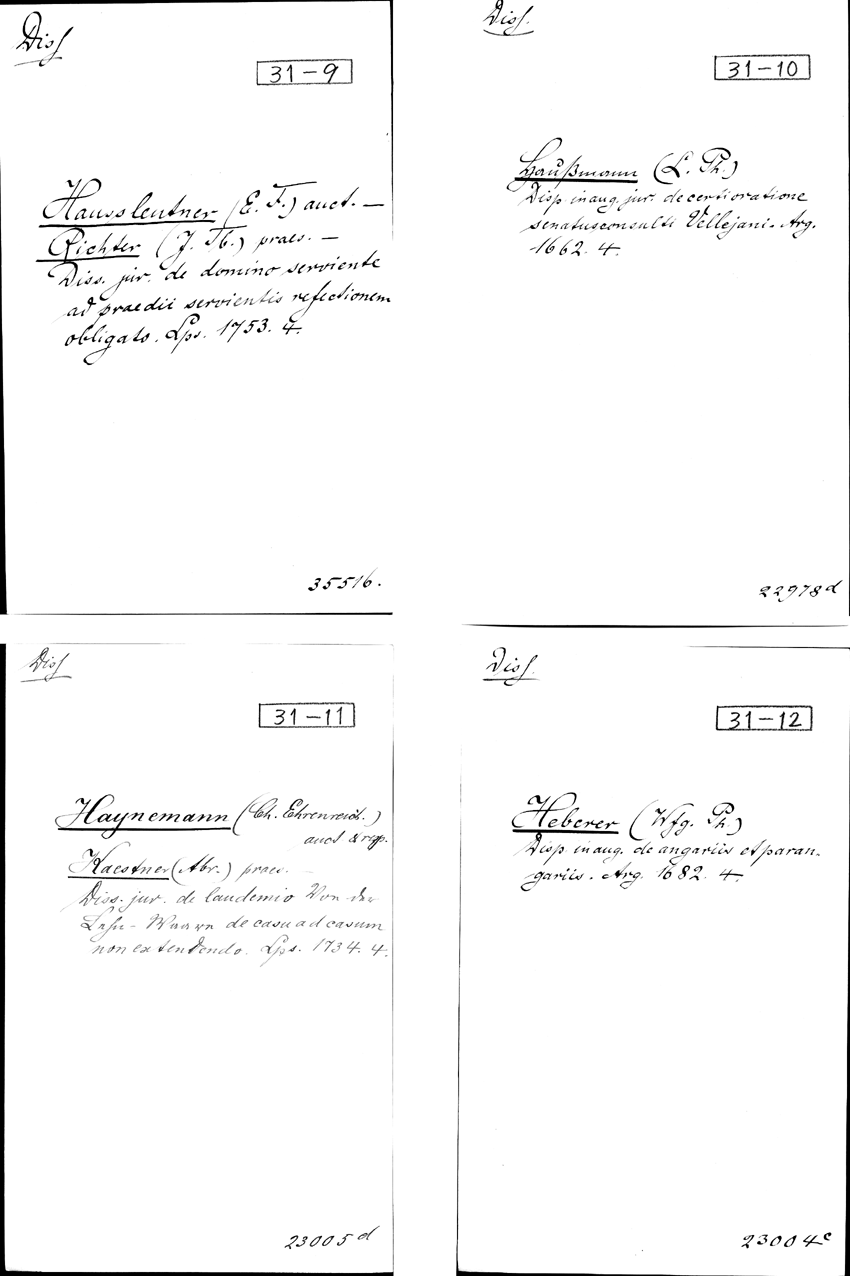 Diss
31-9
Haussleutner (E. F.) auct. —
Richter (J. Th.) praes. —
Diss. jur. de domino serviente
ad praedii servientis refectionem
obligato. Lps. 1753. 4.
35516.
Diss.
31-10
Haußmann (L. Ph.)
Disp. inaug. jur. de certioratione
senatusconsulti Vellejani. Arg.
1662. 4.
22978d
Diss
31-11
Haynemann (Ch. Ehrenreich.)
auct & resp.
Kaestner (Abr.) praes. —
Diss. jur. de laudemio Von der
Lehn-Waare de casu ad casum
non extendendo. Lps. 1734. 4.
23005d
Diss.
31-12
Heberer (Wfg. Ph.)
Disp. inaug. de angariis et paran-
gariis. Arg. 1682. 4.
23004c